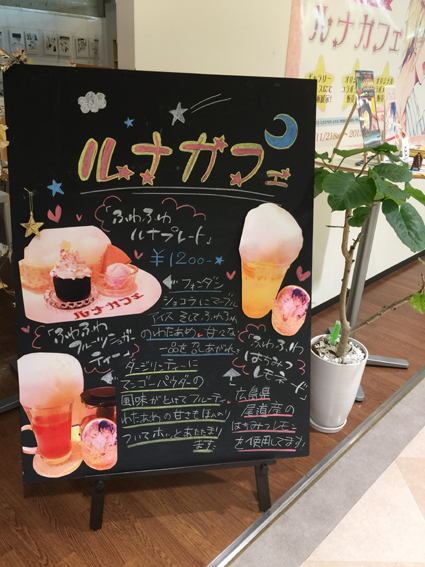 ルナカフェ
ルナカフェ
「ふわふわ
ルナプレート」
¥1200-
フォンダン
ショコラにマーブル
アイス そして ふわふわの
わたあめと 甘々な
一品を召しあがれ。
ルナカフェ
「ふわふわ
フルーツシュガー
ティー」
ダージリンティーに
マンゴーパウダーの
風味がとけてフルーティー。
わたあめの甘さも ほんのり
ついてホッと あたたまり
ます。
「ふわふわ
はちみつ
レモネード」
広島県
尾道産の
はちみつレモン
を使用してます。